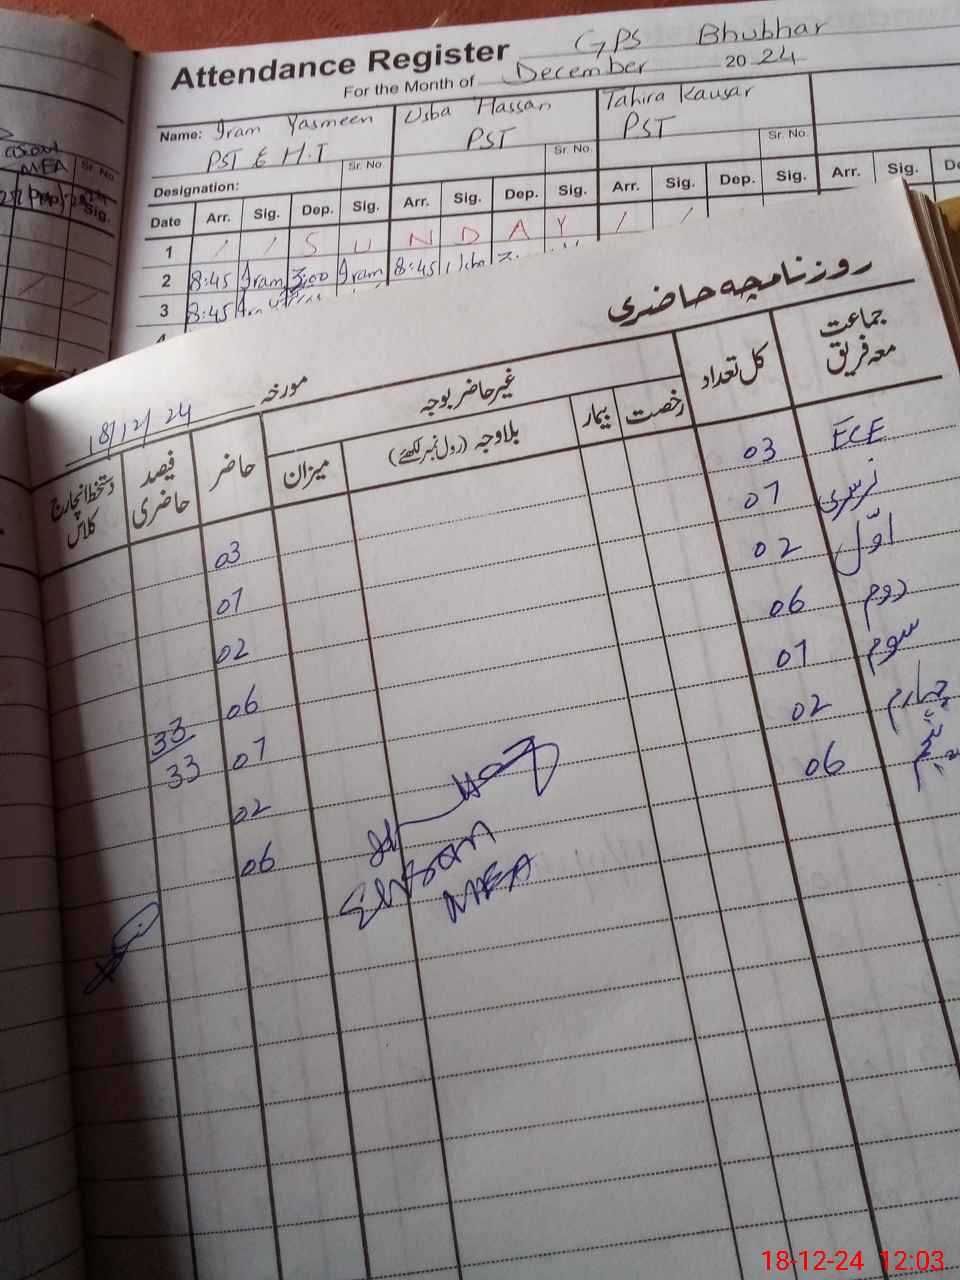 Attendance Register GPS Bhubhar
For the Month of December 2024
Name: Iram Yasmeen Usba Hassan Tahira Kausar
PST & H.T PST PST
Sr. No. Sr. No. Sr. No.
Designation:
Date Arr. Sig. Dep. Sig. Arr. Sig. Dep. Sig. Arr. Sig. Dep. Sig. Arr. Sig.
1 / / S U N D A Y / /
2 8:45 Iram 3:00 Iram 8:45
3 8:45
MEA Sr. No.
Sig.
روزنامچہ حاضری
مورخہ 18/12/24
جماعت معہ فریق کل تعداد غیر حاضر بوجہ حاضر فیصد حاضری دستخط انچارج کلاس
رخصت بیمار بلاوجہ (رول نمبر لکھئے) میزان
ECE 03 03
نرسری 07 07
اوّل 02 02
دوم 06 06
سوم 07 07
چہارم 02 02
پنجم 06 06
33
33
MEA
18-12-24 12:03